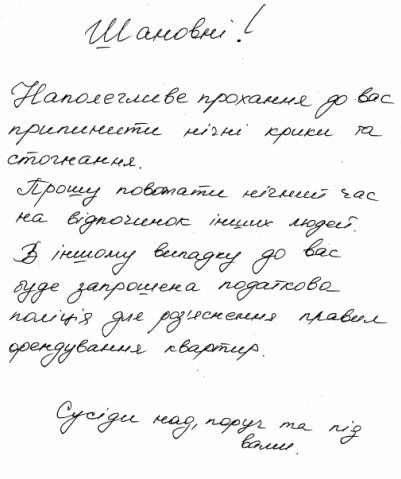 Шановні!
Наполегливе прохання до вас
припинити нічні крики та
стогнання.
Прошу поважати нічний час
на відпочинок інших людей.
В іншому випадку до вас
буде запрошена податкова
поліція для роз'яснення правил
орендування квартир.
Сусіди над, поруч та під
вами.